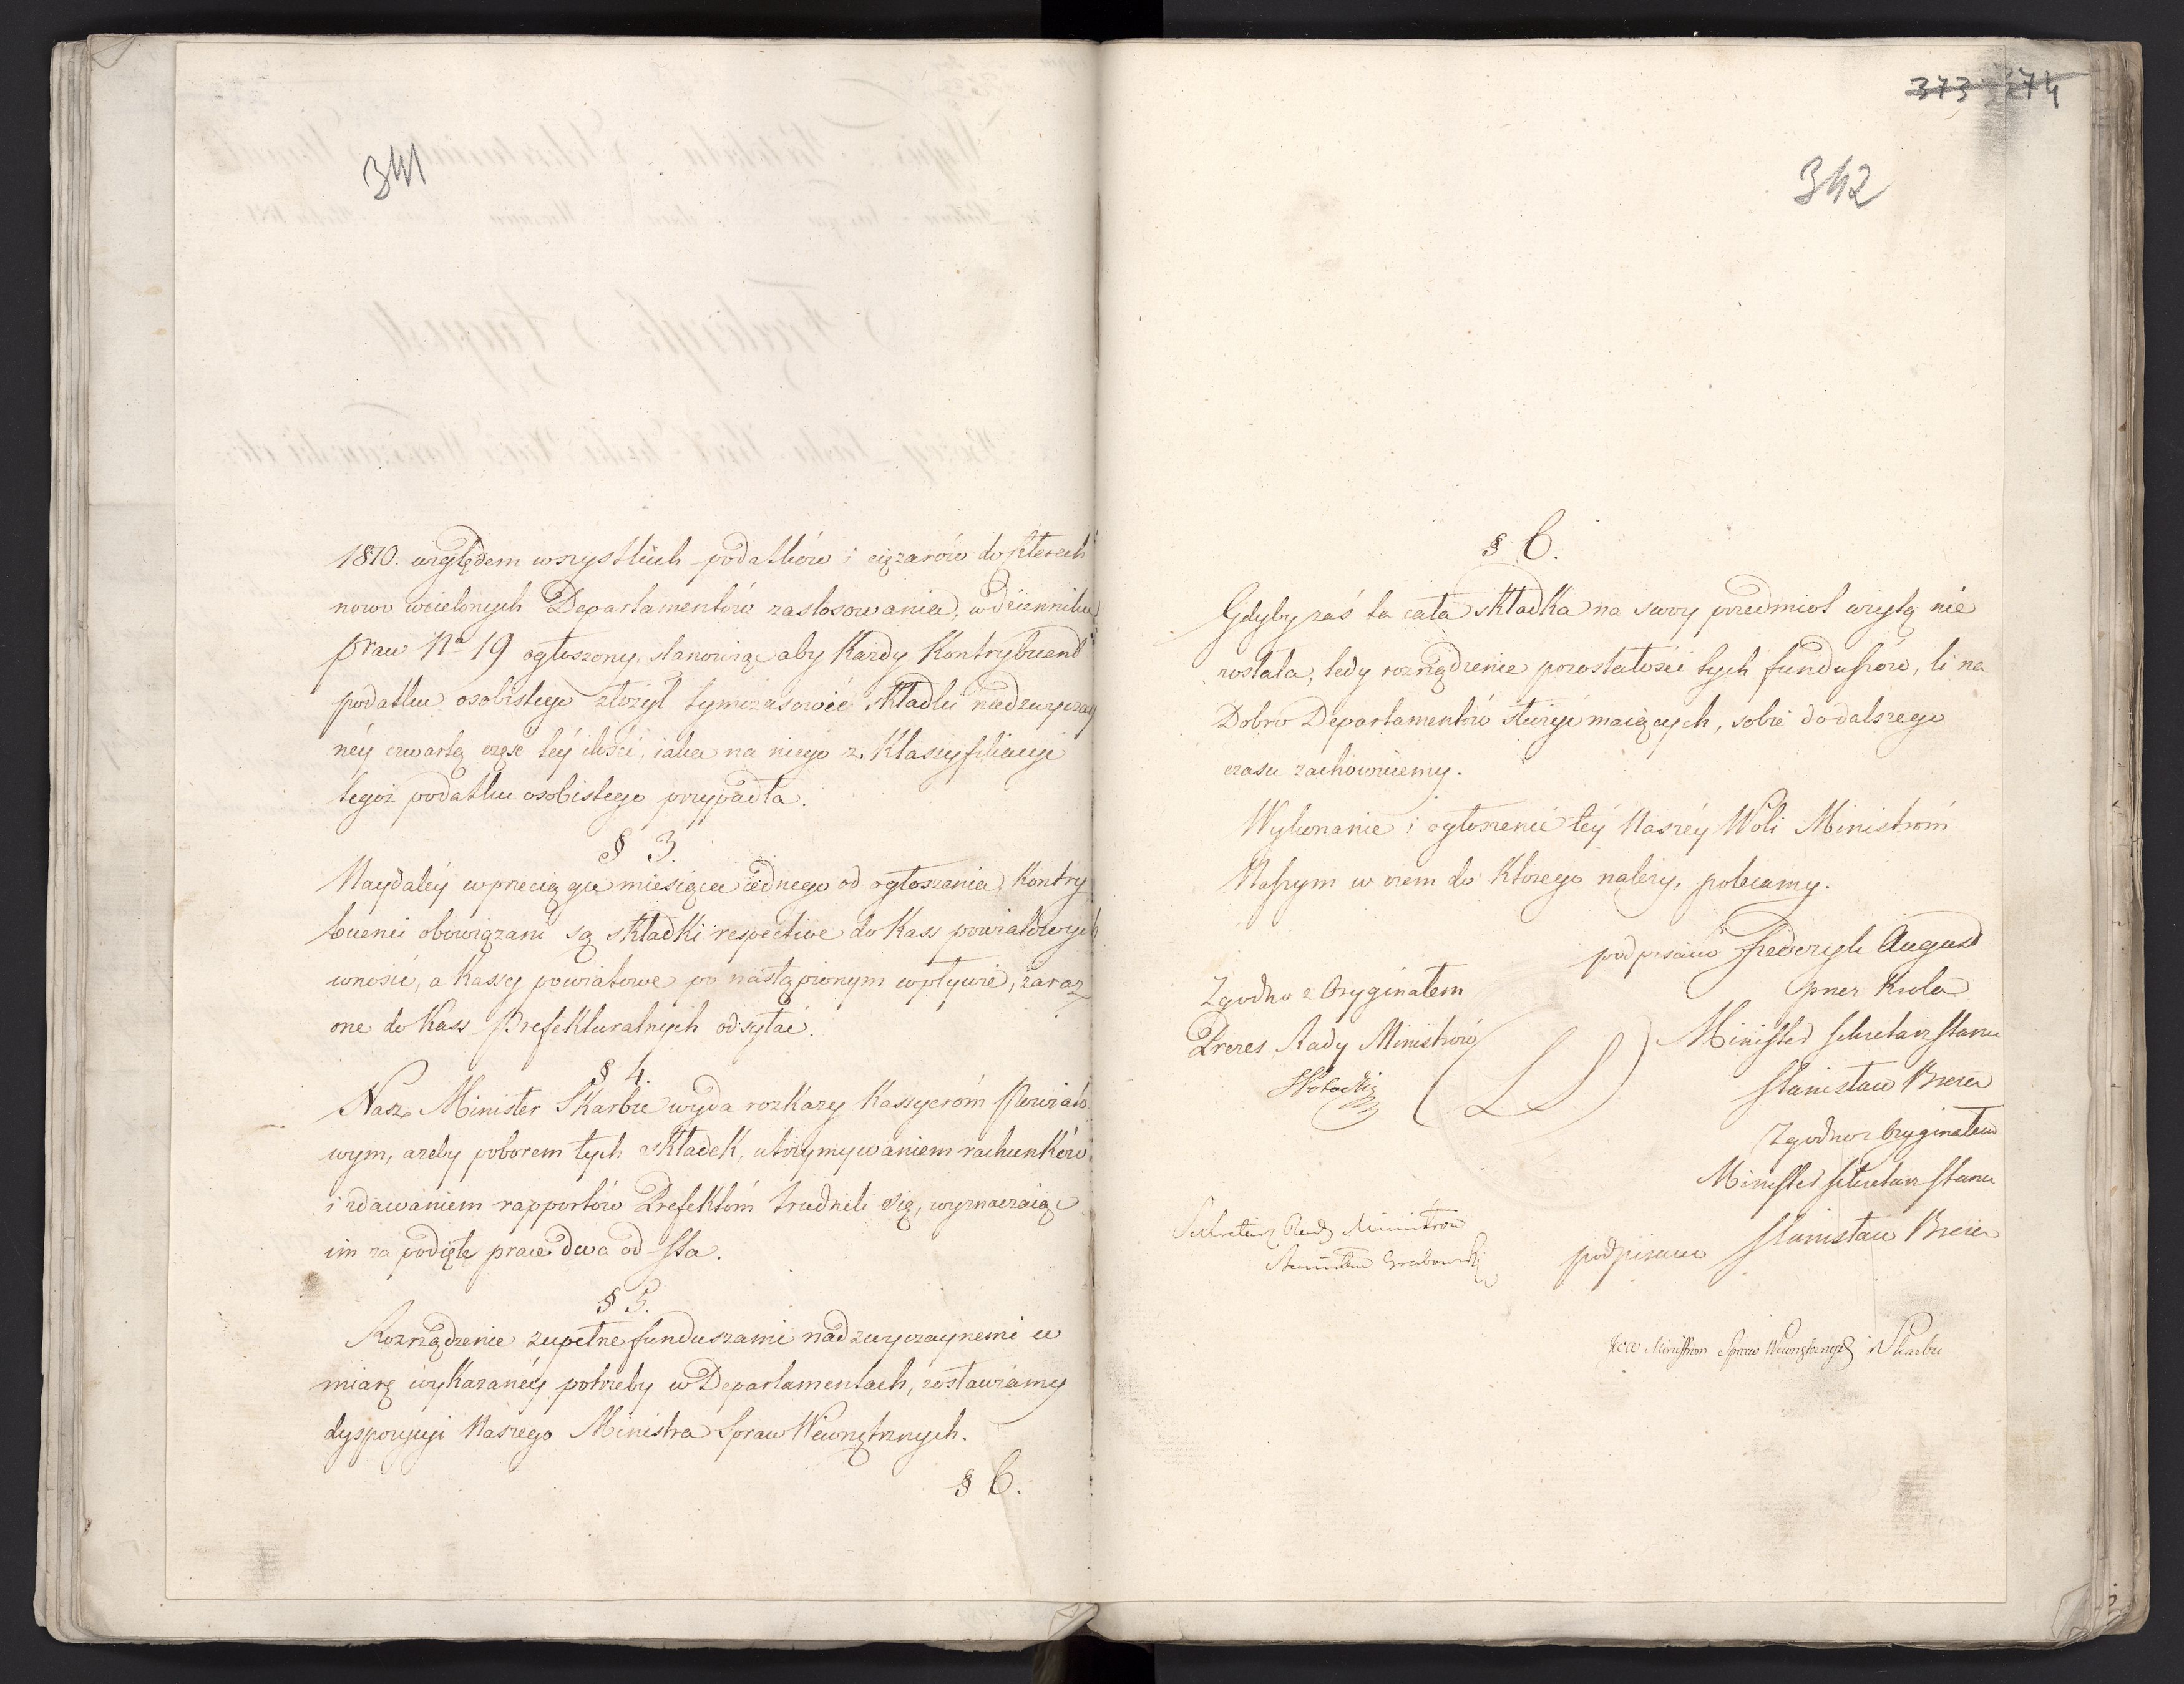 341
1810. względem wszystkich podatków i ciężarów do czterech
nowo wcielonych Departamentów zastosowania, w dzienniku
praw No 19 ogłoszony, stanowiąc aby Każdy Kontrybuent
podatku osobistego złożył tymczasowie Składki nadzwyczay
néy czwartą częsc téy ilości, iaka na niego z Klassyfikacyi
tegoż podatku osobistego przypadła.
§ 3.
Naydaléy w przeciągu miesiąca iednego od ogłoszenia, Kontry
buenci obowiązani są składki respective do Kass powiatowych
wnosić, a Kassy powiatowe po nastąpionym wpływie, zaraz
one do Kass Prefekturalnych odsyłać.
§ 4.
Nasz Minister Skarbu wyda rozkazy Kassyeróm Powiato
wym, ażeby poborem tych składek, utrzymywaniem rachunków
i zdawaniem rapportów Prefektóm trudnili się, wyznaczaiąc
im za podiętę prace dwa od Sta.
§ 5.
Rozrządzenie zupełne funduszami nadzwyczaynemi w
miarę wykazanéy potrzeby w Departamentach, zostawiamy
dyspozycyi Naszego Ministra Spraw Wewnętrznych.
§ 6.
373 374
342
§ 6.
Gdyby zaś ta cała składka na swoy przedmiot użytą nie
została, tedy rozrządzenie pozostałości tych funduszów, li na
Dobro Departamentów służyć maiących, sobie do dalszego
czasu zachowuiemy.
Wykonanie i ogłoszenie téy Naszéy Woli Ministróm
Naszym w czem do Którego należy, polecamy.
podpisano Frederyk August
przez Krola
Minister Sekretarz Stanu
Stanisław Breza
Zgodno z Oryginałem
Prezes Rady Ministrów
S Potocki
(L S)
Zgodno z Oryginałem
Minister Sekretarz Stanu
podpisano Stanisław Breza
Sekretarz Rady Ministrow
Stanisław Grabowski
JWW Ministrom Spraw Wewnętrznych i Skarbu